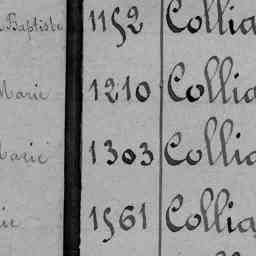 Baptiste 1152 Collia
Marie 1210 Collia
Marie 1303 Collia
1561 Collia